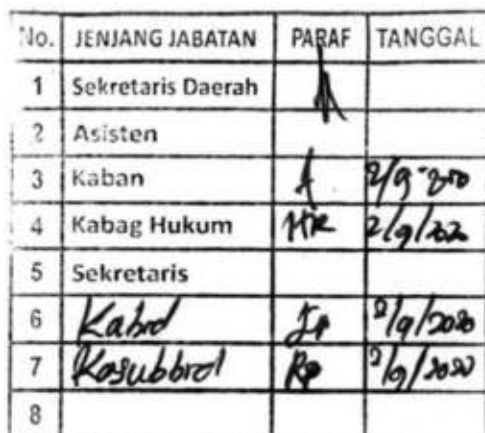 No. JENJANG JABATAN PARAF TANGGAL
1 Sekretaris Daerah
2 Asisten
3 Kaban
4 Kabag Hukum HR 2/9/2020
5 Sekretaris
6 Kabid 2/9/2020
7 Kasubbid Rp 2/9/2020
8